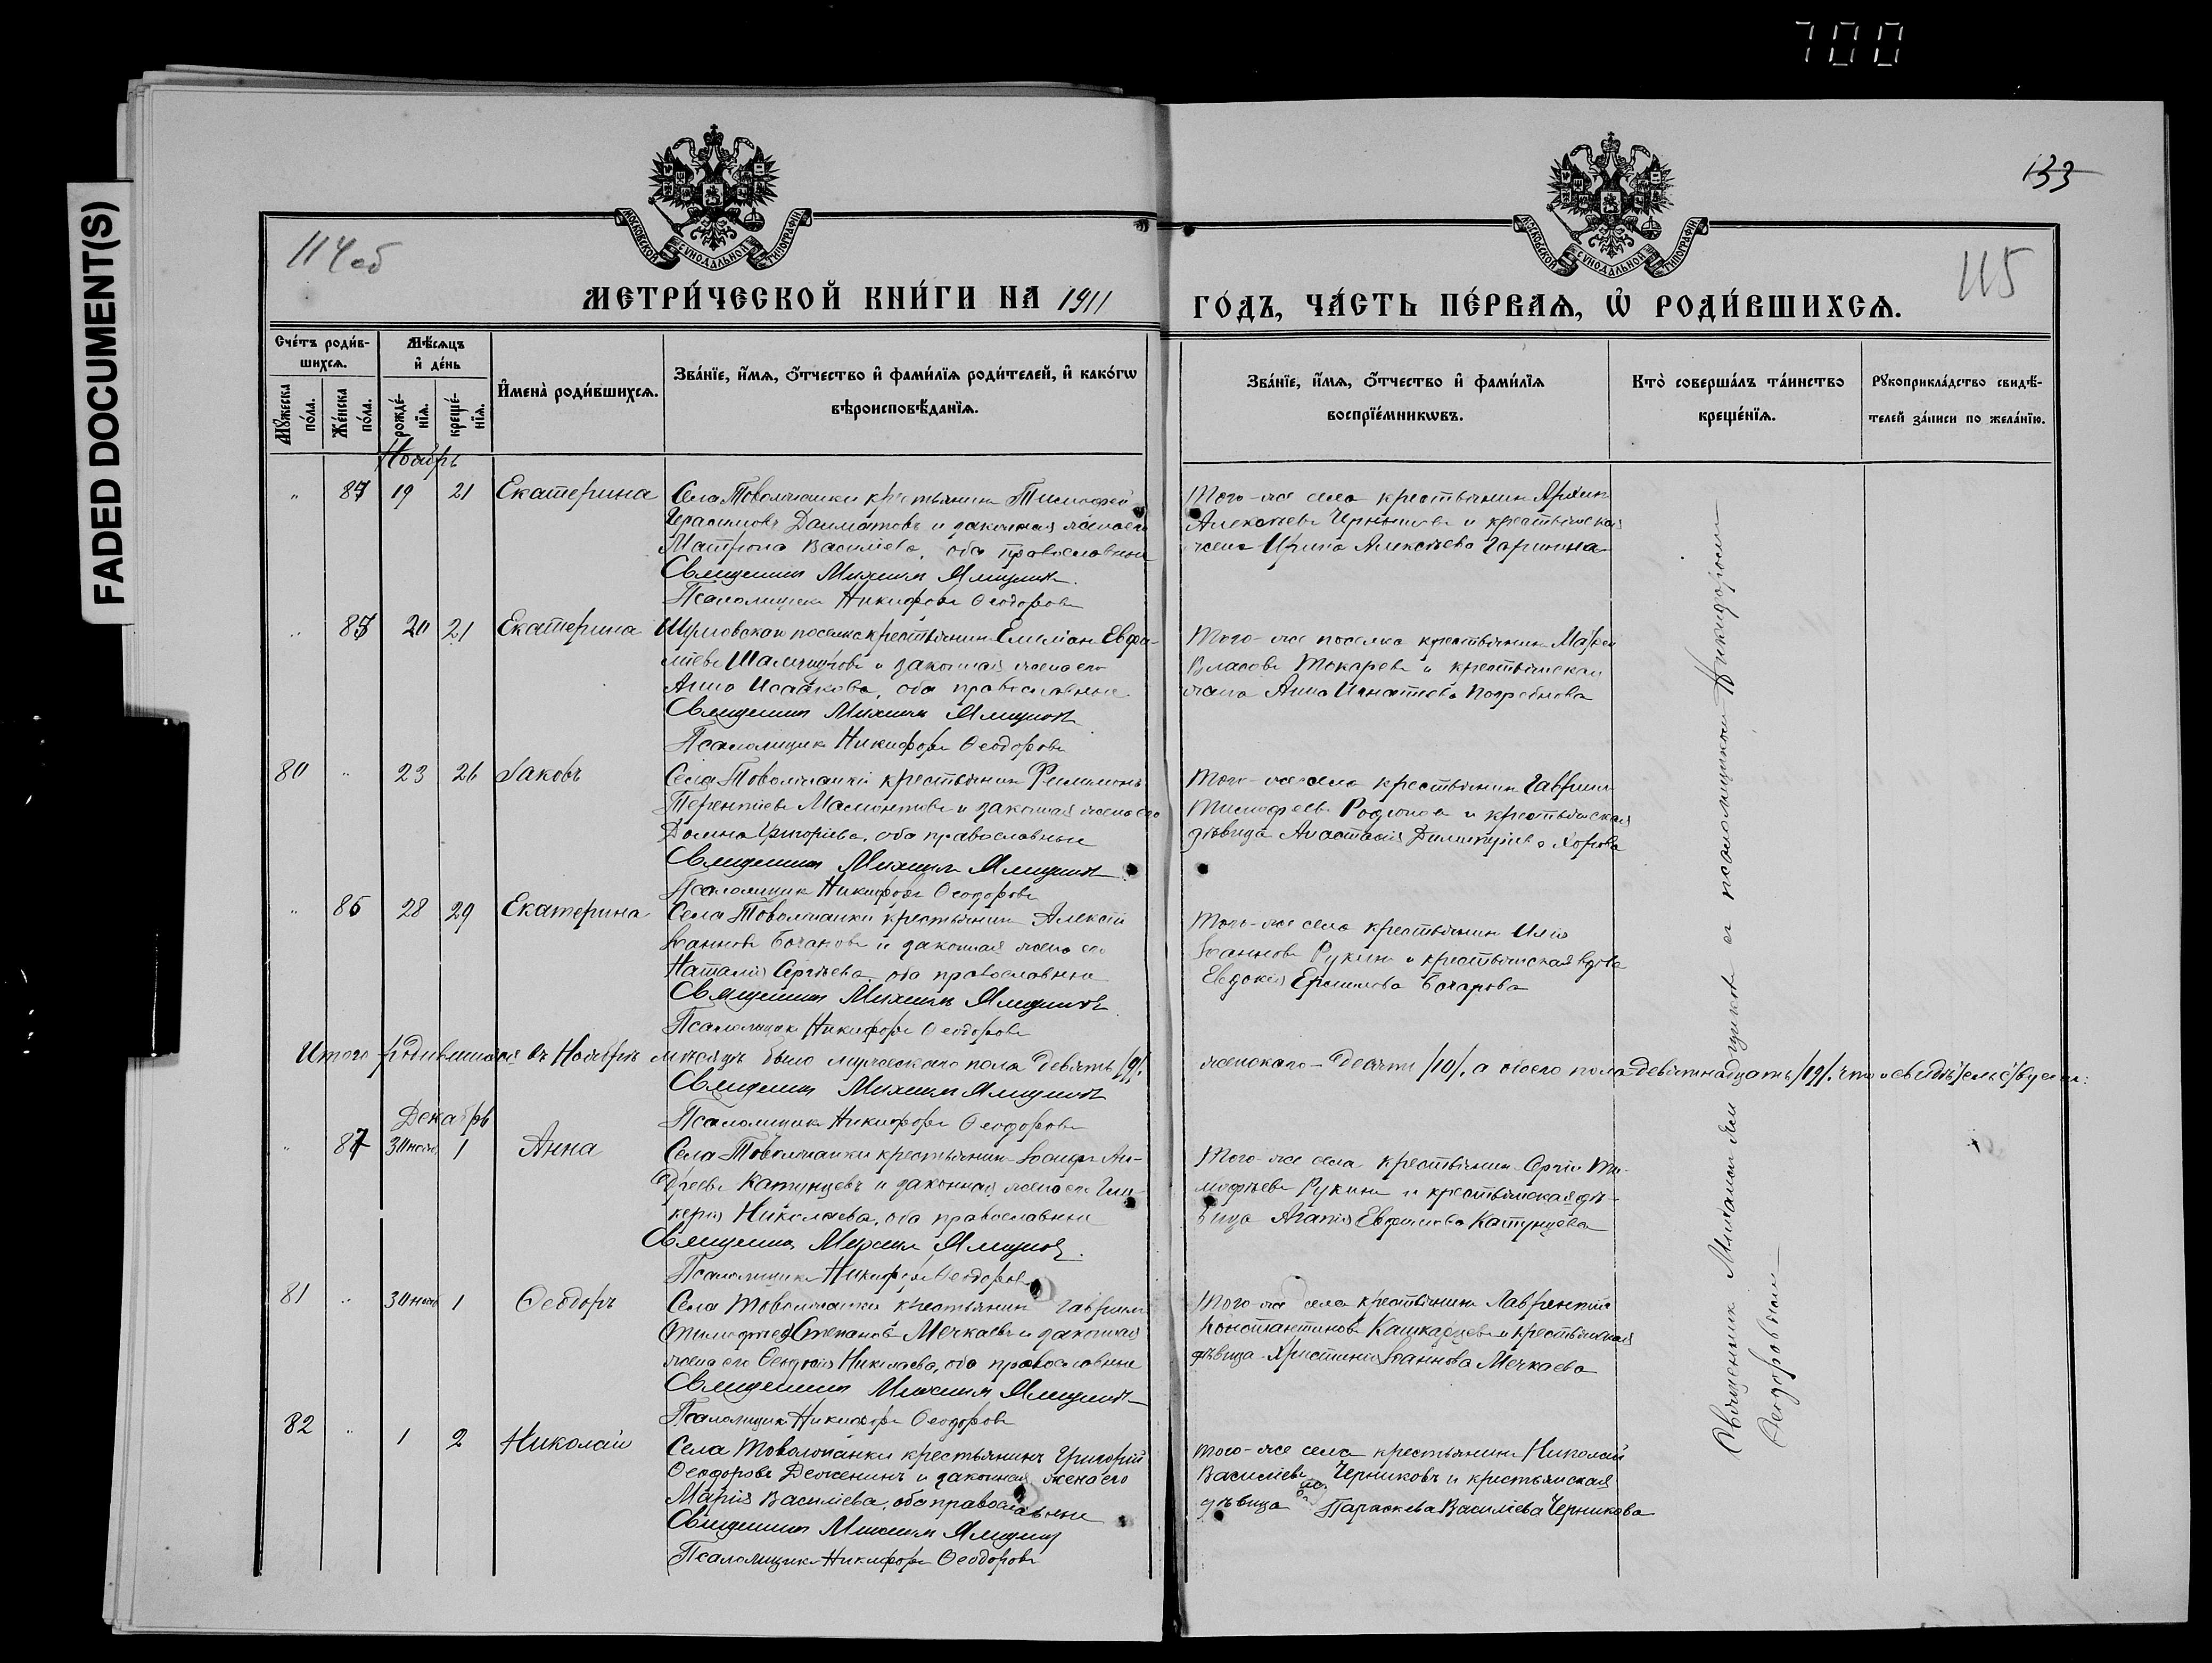 700
FADED DOCUMENT(S)
133
114об
115
МОСКОВСКОЙ СѴНОДАЛЬНОЙ ТИПОГРАФІИ
МОСКОВСКОЙ СѴНОДАЛЬНОЙ ТИПОГРАФІИ
МЕТРИ́ЧЕСКОЙ КНИ́ГИ НА 1911
ГО́ДЪ, ЧА́СТЬ ПЕ́РВАЯ, Ѡ҆ РОДИ́ВШИХСЯ.
Сче́тъ роди́в-
шихся.
Мѣ́сяцъ
и҆ де́нь
Мꙋ́жеска по́ла.
Же́нска по́ла.
рожде́-нїя.
креще́-нїя.
И҆мена̀ роди́вшихся.
Зва́нїе, и҆́мя, ѻ҆́тчество и҆ фами́лїя роди́телей, и҆ како́гѡ
вѣроисповѣ́данїя.
Зва́нїе, и҆́мя, ѻ҆́тчество и҆ фами́лїя
воспрїе́мникѡвъ.
Кто̀ соверша́лъ та́инство
креще́нїя.
Рꙋкоприкла́дство свидѣ́-
телей за́писи по жела́нїю.
Ноябрь
" 84 19 21 Екатерина
Села Товолжанки крестьянинъ Тимофей
Герасимовъ Долматовъ и законная жена его
Матрона Василіева, оба православные
Священникъ Михаилъ
Псаломщикъ Никифоръ Ѳеодоровъ
Того-же села крестьянинъ
Алексѣевъ и крестьянская
жена Ирина Алексѣева
" 85 20 21 Екатерина
поселка крестьянинъ Емеліанъ
и законная жена его
Анна Исаакова, оба православные
Священникъ Михаилъ
Псаломщикъ Никифоръ Ѳеодоровъ
Того-же поселка крестьянинъ
Власовъ Токаревъ и крестьянская
жена Анна Игнатіева Погребнова
80 " 23 26 Іаковъ
Села Товолжанки крестьянинъ Филимонъ
Терентіевъ Мамонтовъ и законная жена его
Домна Григоріева, оба православные
Священникъ Михаилъ
Псаломщикъ Никифоръ Ѳеодоровъ
Того-же села крестьянинъ Гавріилъ
Тимофеевъ Родіоновъ и крестьянская
дѣвица Анастасія Димитріева
" 86 28 29 Екатерина
Села Товолжанки крестьянинъ Алексій
Іоанновъ и законная жена его
Наталія Сергіева, оба православные
Священникъ Михаилъ
Псаломщикъ Никифоръ Ѳеодоровъ
Того-же села крестьянинъ Илія
Іоанновъ Рукинъ и крестьянская вдова
Евдокія Ермилова Бочарова
Итого родившихся въ Ноябрѣ мѣсяцѣ было мужескаго пола девять /9/,
женскаго - десять /10/, а обоего пола девятнадцать /19/, что и свидѣтельствуемъ:
Священникъ Михаилъ
Псаломщикъ Никифоръ Ѳеодоровъ
Декабрь
" 87 30 нояб. 1 Анна
Села Товолжанки крестьянинъ Іосифъ Ан-
дреевъ Катунцевъ и законная жена его Гли-
керія Николаева, оба православные
Священникъ Михаилъ
Псаломщикъ Никифоръ Ѳеодоровъ
Того-же села крестьянинъ Сергій Ти-
мофѣевъ Рукинъ и крестьянская дѣ-
вица Агапія Евфимова Катунцева
81 " 30 нояб. 1 Ѳеодоръ
Села Товолжанки крестьянинъ Гавріилъ
Степановъ Мечкаевъ и законная
жена его Николаева, оба православные
Священникъ Михаилъ
Псаломщикъ Никифоръ Ѳеодоровъ
Того-же села крестьянинъ Лаврентій
Константиновъ и крестьянская
дѣвица Христинія Іоаннова Мечкаева
82 " 1 2 Николай
Села Товолжанки крестьянинъ Григорій
Ѳеодоровъ и законная жена его
Марія Василіева, оба православные
Священникъ Михаилъ
Псаломщикъ Никифоръ Ѳеодоровъ
того-же села крестьянинъ Николай
Василіевъ Черниковъ и крестьянская
дѣвица Параскева Василіева Черникова
Священникъ Михаилъ съ псаломщикомъ Никифоромъ
Ѳеодоровымъ